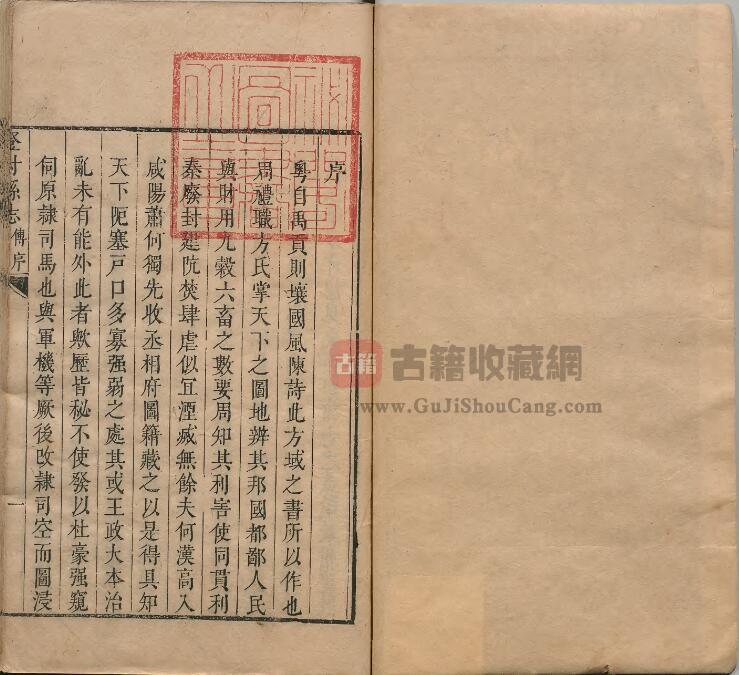 序
粵自禹貢則壤國風陳詩此方域之書所以作也
周禮職方氏掌天下之圖地辨其邦國都鄙人民
與財用九穀六畜之數要周知其利害使同貫利
秦廢封建阬焚肆虐似宜湮滅無餘夫何漢高入
咸陽蕭何獨先收丞相府圖籍藏之以是得具知
天下阨塞戸口多寡强弱之處其或王政大本治
亂未有能外此者歟歷皆秘不使發以杜豪强窺
伺原隸司馬也與軍機等厥後改隸司空而圖浸
縣志 傳序
一
古籍 古籍收藏網
www.GuJiShouCang.com